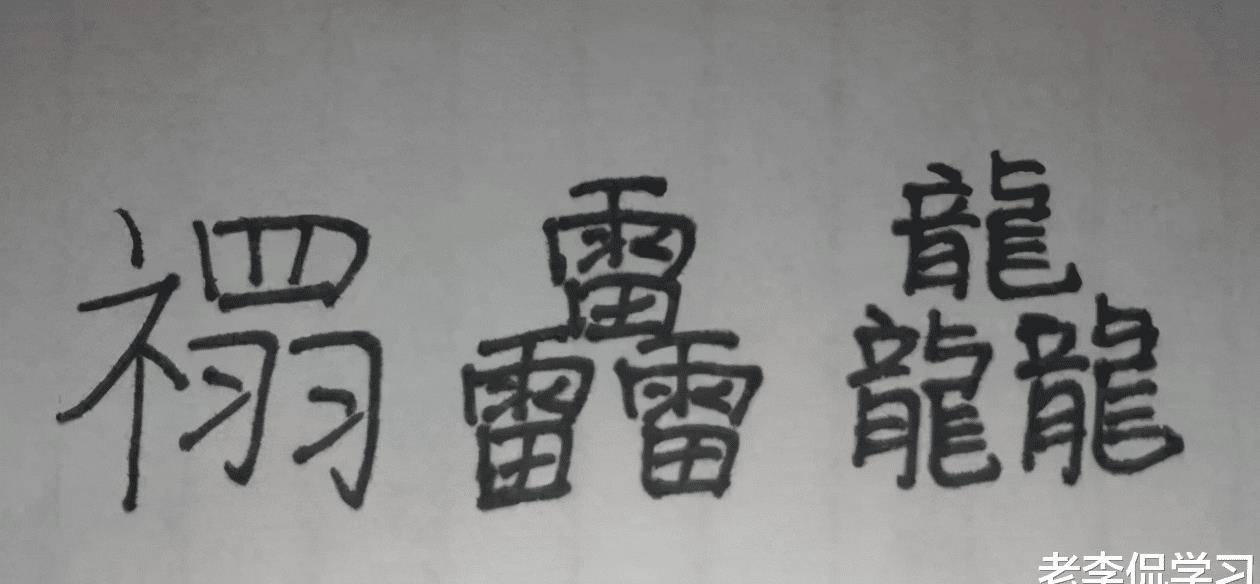 靐龘
老李侃学习